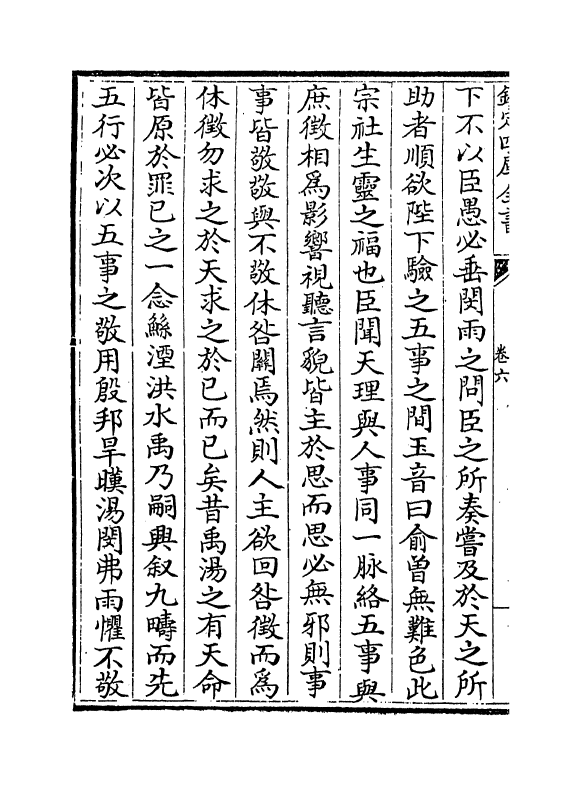 欽定四庫全書
卷六
下不以臣愚必垂閔雨之問臣之所奏嘗及於天之所
助者順欲陛下驗之五事之間玉音曰俞曾無難色此
宗社生靈之福也臣聞天理與人事同一脉絡五事與
庶徵相爲影響視聽言貌皆主於思而思必無邪則事
事皆敬敬與不敬休咎關焉然則人主欲回咎徵而爲
休徵勿求之於天求之於已而已矣昔禹湯之有天命
皆原於罪已之一念鯀湮洪水禹乃嗣興叙九疇而先
五行必次以五事之敬用殷邦旱暵湯閔弗雨懼不敬